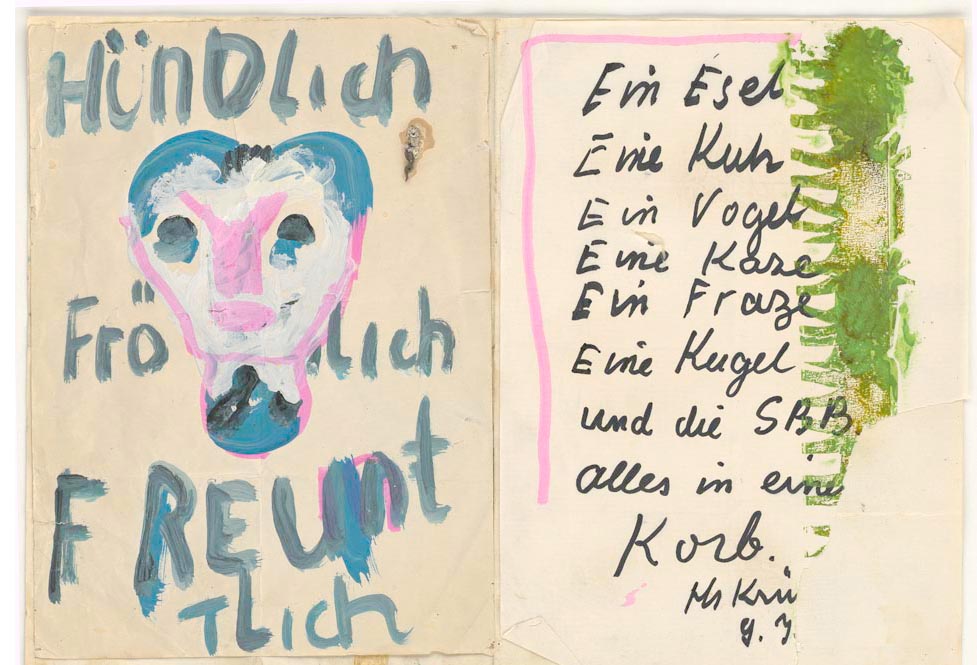 HÜnDLich
FrÖhLich
FREUnt
TLich
Ein Esel
Eine Kuh
Ein Vogel
Eine Kaze
Ein Fraze
Eine Kugel
und die SBB
alles in eine
Korb.
Hs Krü
g. J.